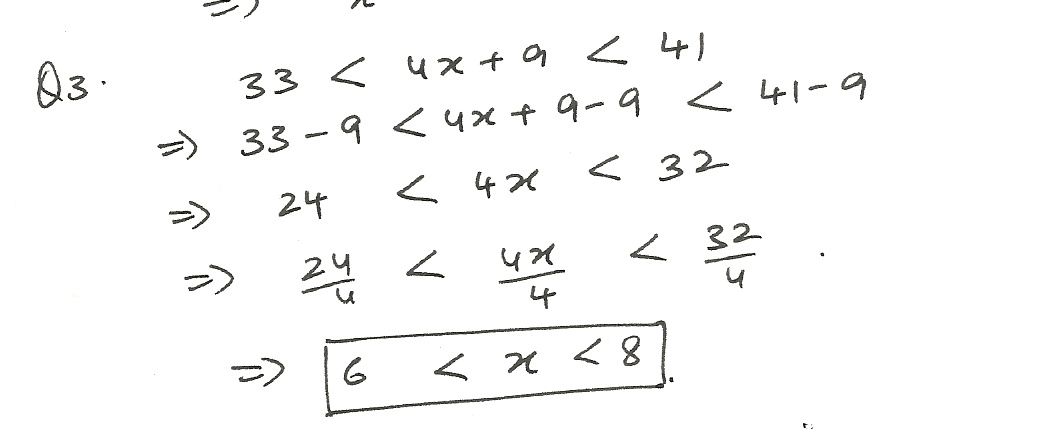 Q3. 33 < 4x + 9 < 41
⇒ 33 - 9 < 4x + 9 - 9 < 41 - 9
⇒ 24 < 4x < 32
⇒ 24/4 < 4x/4 < 32/4 .
⇒ 6 < x < 8.